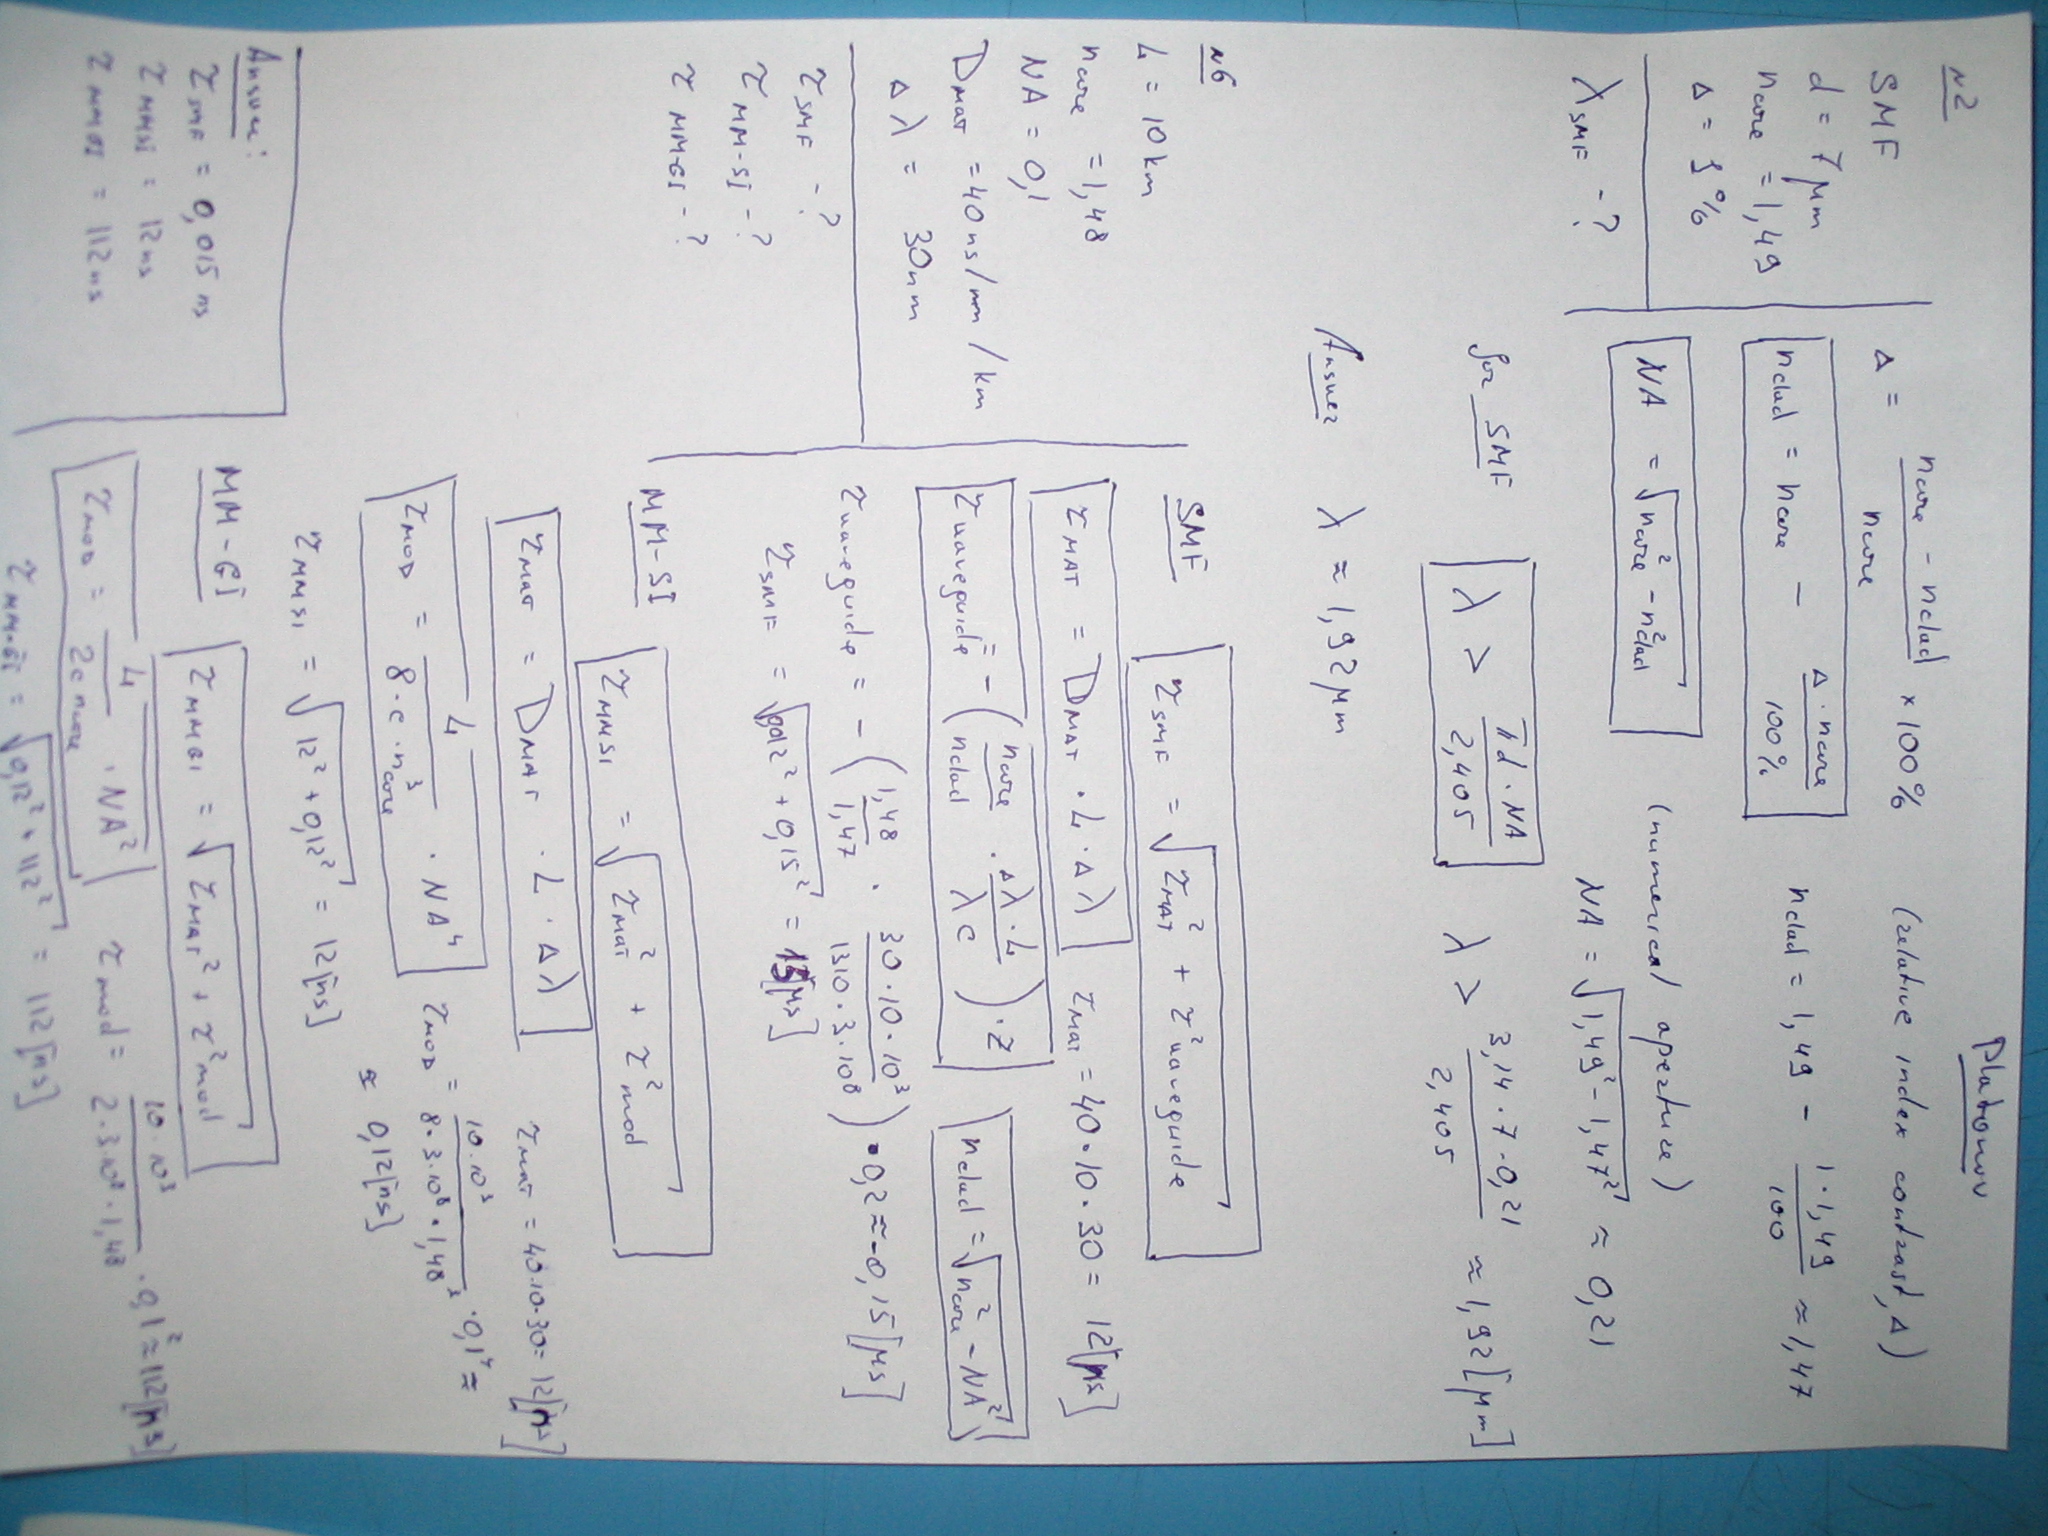 Platonov
N2
SMF
d = 7 μm
ncore = 1,49
Δ = 1 %
λSMF - ?
Δ = (ncore - nclad) / ncore × 100% (relative index contrast, Δ)
nclad = ncore - Δ·ncore / 100% nclad = 1,49 - 1·1,49 / 100 ≈ 1,47
NA = √(n²core - n²clad) (numerical aperture)
NA = √(1,49² - 1,47²) ≈ 0,21
for SMF λ > πd·NA / 2,405 λ > 3,14·7·0,21 / 2,405 ≈ 1,92 [μm]
Answer λ ≈ 1,92 μm
N6
L = 10 km
ncore = 1,48
NA = 0,1
DMAT = 40 ns/nm/km
Δλ = 30 nm
τSMF - ?
τMM-SI - ?
τMM-GI - ?
SMF τSMF = √(τ²MAT + τ²waveguide)
τMAT = DMAT · L · Δλ τMAT = 40·10·30 = 12 [μs]
τwaveguide = - (ncore / nclad · Δλ·L / λc) · z nclad = √(n²core - NA²)
τwaveguide = - (1,48 / 1,47 · 30·10·10³ / 1310·3·10⁸) · 0,2 ≈ -0,15 [μs]
τSMF = √(0,012² + 0,15²) = 15 [μs]
MM-SI τMMSI = √(τ²MAT + τ²mod)
τMAT = DMAT · L · Δλ τMAT = 40·10·30 = 12 [ns]
τMOD = L / 8·c·n³core · NA⁴ τMOD = 10·10³ / 8·3·10⁸·1,48³ · 0,1⁴ ≈
≈ 0,12 [ns]
τMMSI = √(12² + 0,12²) = 12 [ns]
MM-GI τMMGI = √(τMAT² + τ²mod)
τMOD = L / 2c ncore · NA² τmod = 10·10³ / 2·3·10⁸·1,48 · 0,1² ≈ 112 [ns]
τMM-GI = √(0,12² + 112²) = 112 [ns]
Answer:
τSMF = 0,015 ns
τMMSI = 12 ns
τMMGI = 112 ns